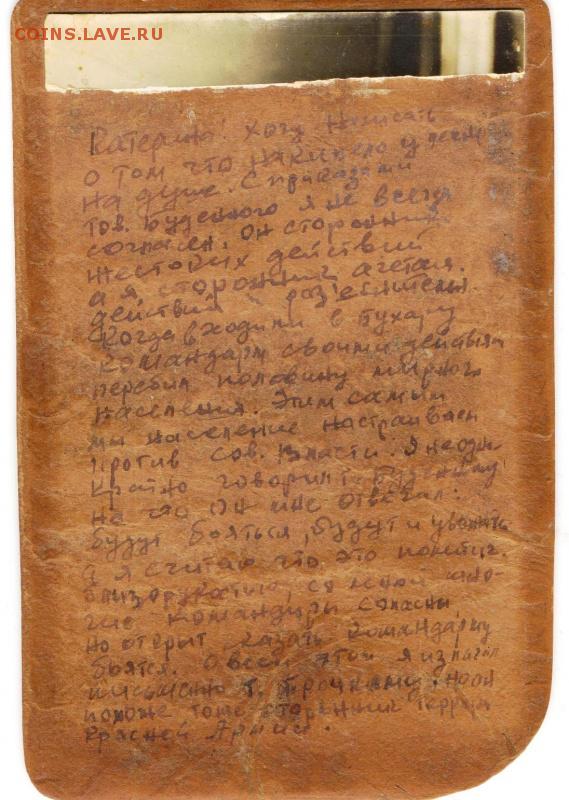 COINS.LAVE.RU
Катерина! Хочу написать
о том что накипело у меня
на душе. С приказами
тов. Буденного я не всегда
согласен. Он сторонник
жестоких действий
а я сторонник агетац.
действий и раз'еснительн.
Когда входили в Бухару
командарм своими действиям
перебил половину мирного
населения. Этим самым
мы население настраиваем
против сов. власти. Я неодн-
кратно говорил т. Буденному
на что он мне отвечал:
будут бояться, будут и уважать
а я считаю что это политич.
близорукостью, со мной мно-
гие командиры согласны,
но открыт. сказать командарму
боятся. О всем этом я излагал
письменно т. Троцкому, но он
похоже тоже сторонник террора
Красной Армии.